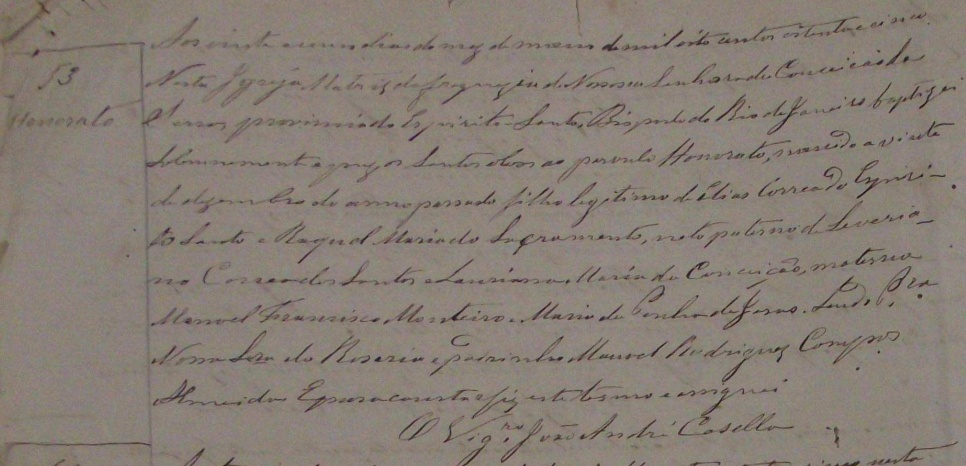 53
Honorato
Aos vinte e um dias do mez de março de mil oito centos oitenta e cinco
Nesta Igreja Matriz da freguezia de Nossa Senhora da Conceição da
Serra provincia do Espirito Santo, Bispado do Rio de Janeiro baptizei
solemnemente e puz os Santos oleos ao parvulo Honorato, nascido a vinte
de dezembro do anno passado filho legitimo de Elias Correa do Espiri-
to Santo e Raquel Maria do Sacramento, neto paterno de Severia-
no Correa dos Santos e Lauriana Maria da Conceição, materno
Manoel Francisco Monteiro e Maria da Penha de Jesus. Sendo P.ra
Nossa Snra do Rosario e padrinho Manoel Rodrigues Campos
Almeida. E para constar fiz este termo e assignei
O Vigr.o João André Casella